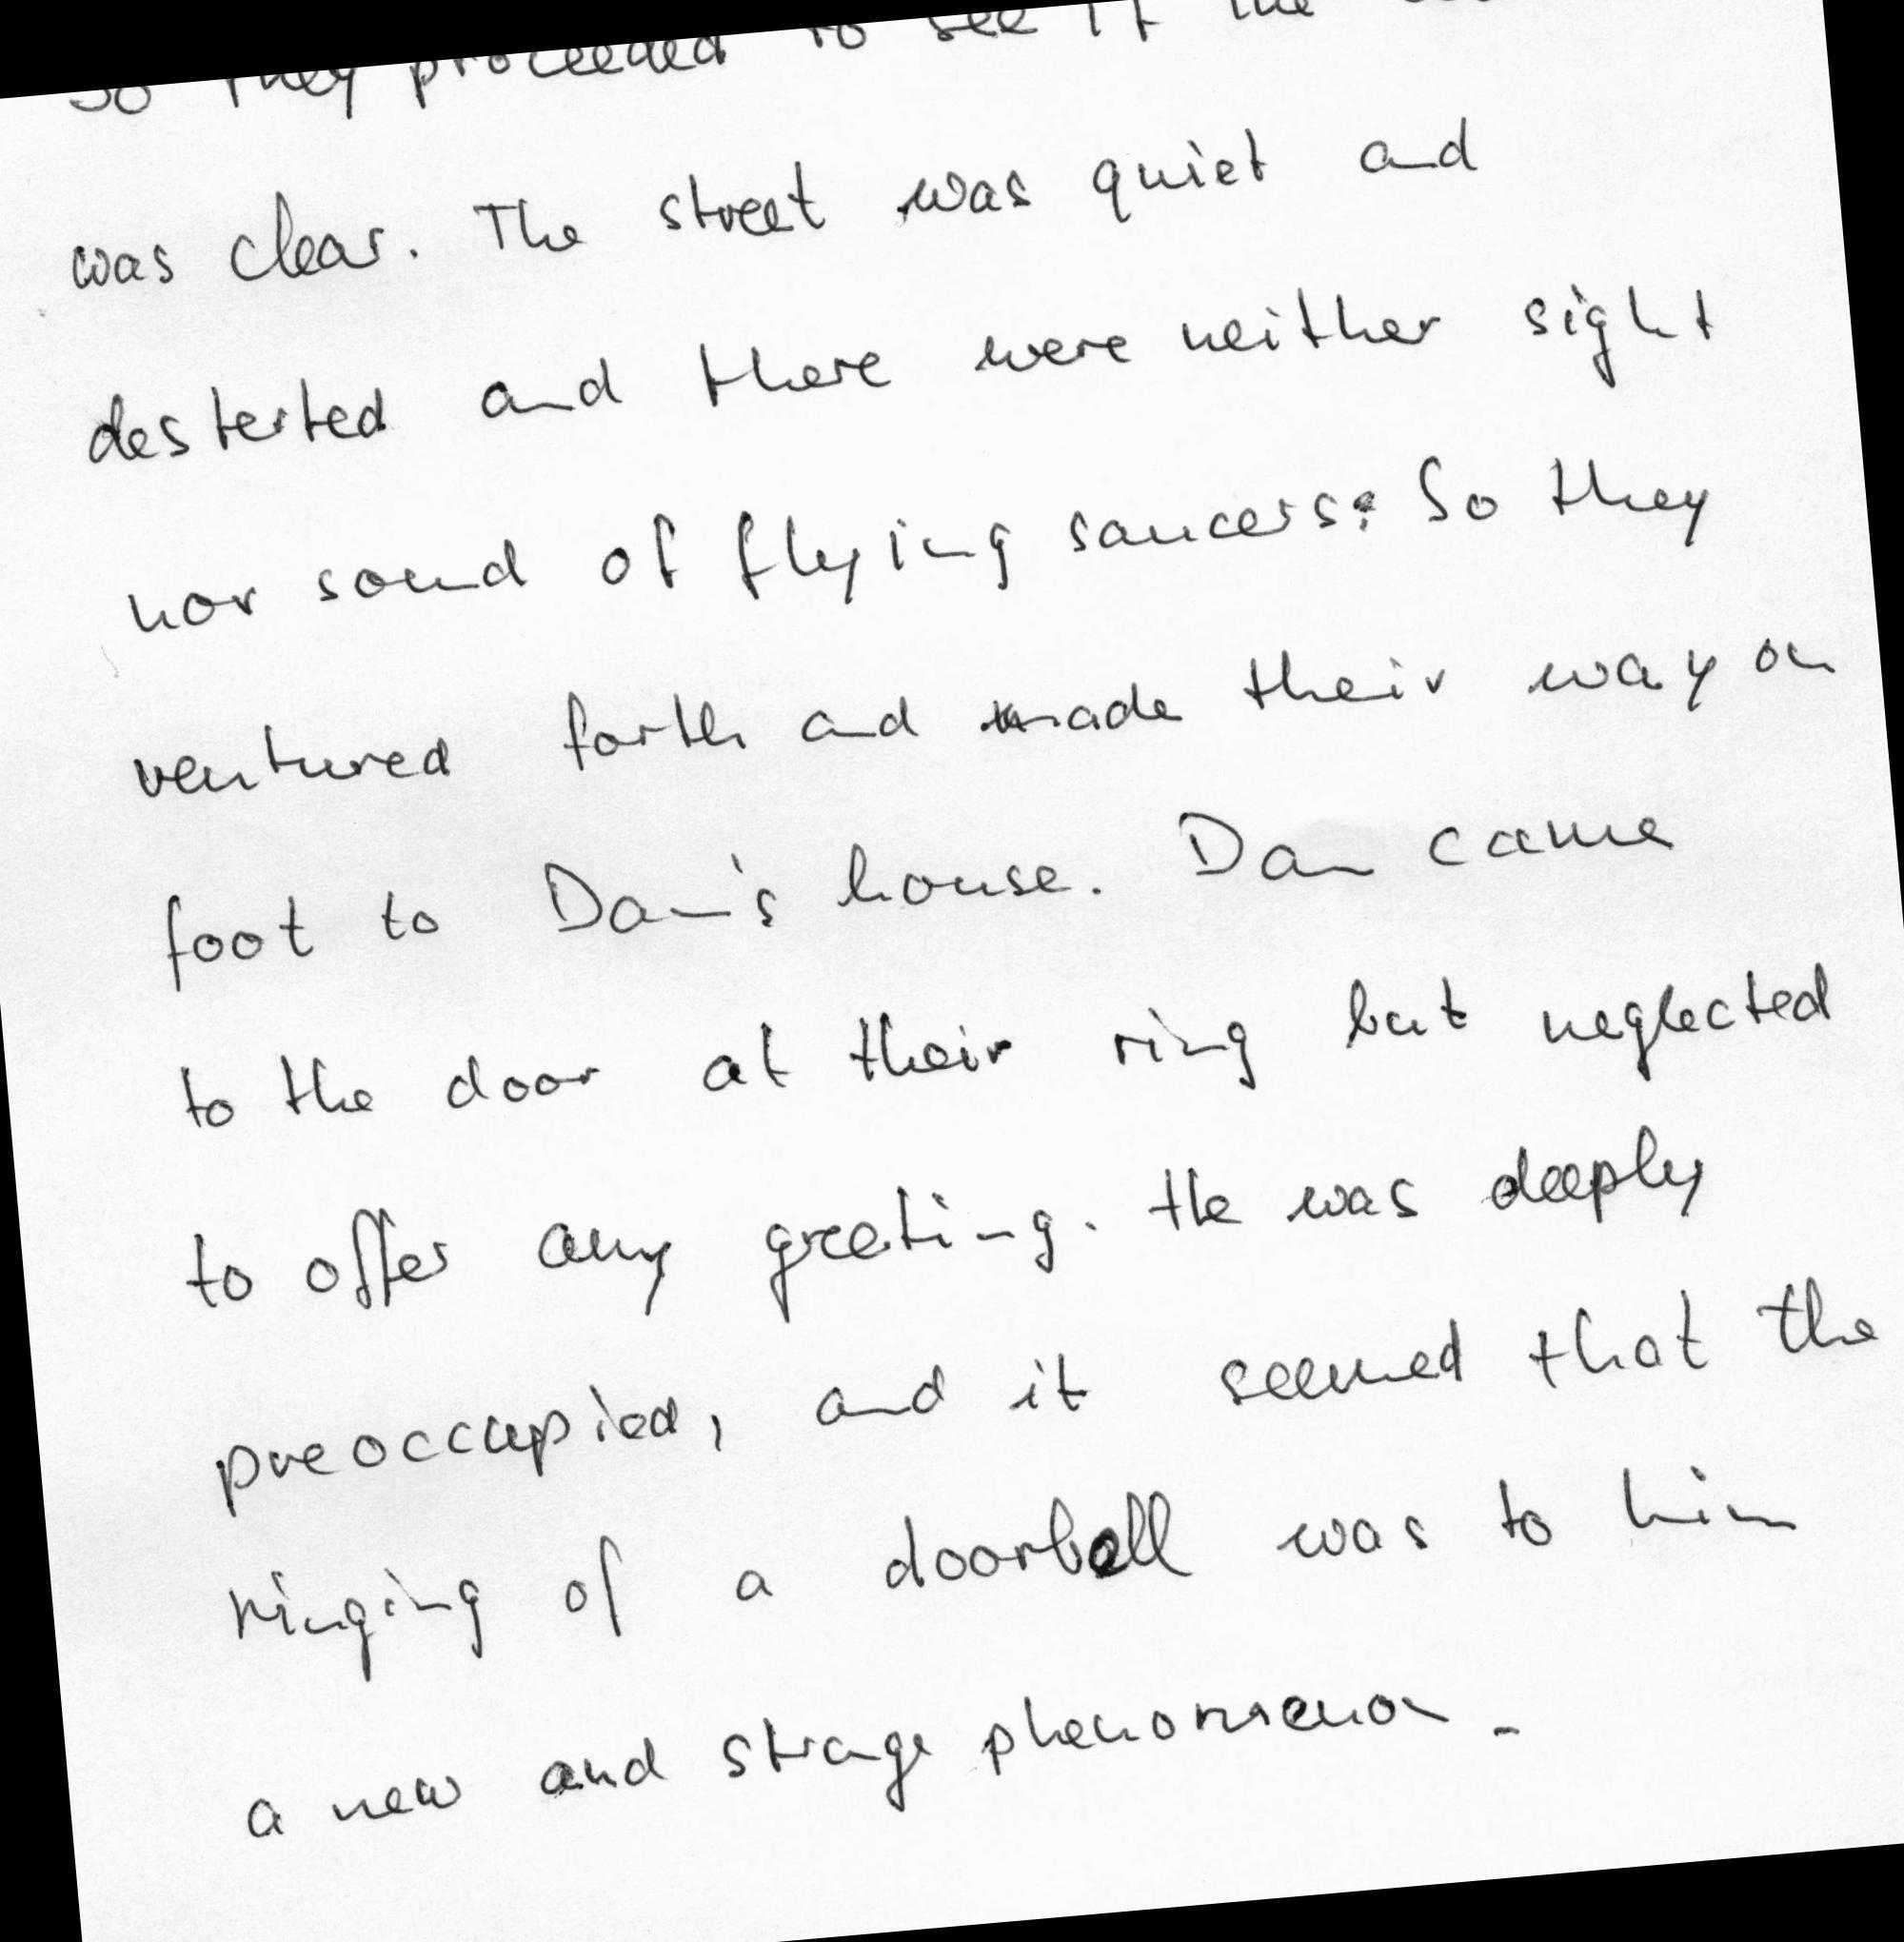 So they proceeded to see if the
was clear. The street was quiet and
desterted and there were neither sight
nor sound of flying saucers. So they
ventured forth and made their way on
foot to Dan's house. Dan came
to the door at their ring but neglected
to offer any greeting. He was deeply
preoccupied, and it seemed that the
ringing of a doorbell was to him
a new and strange phenomenon.